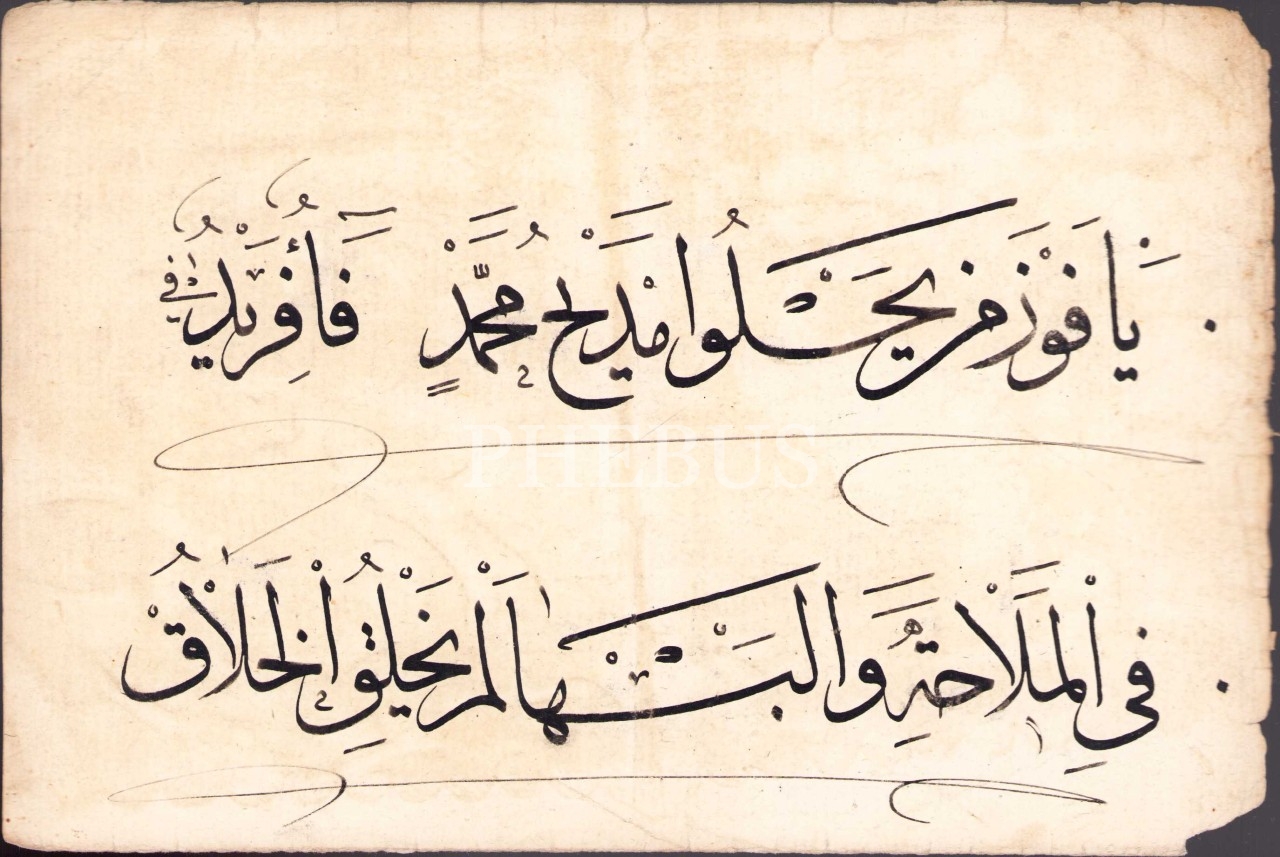 يَا فَوْزَ مَنْ يَحْلُوا مَدِيْحُ مُحَمَّدٍ فَأَفِرِيْدُ فى
فى الْمَلَاحَةِ وَالْبَهَا لَمْ يَخْلُقِ الْخَلَّاقُ
PHEBUS